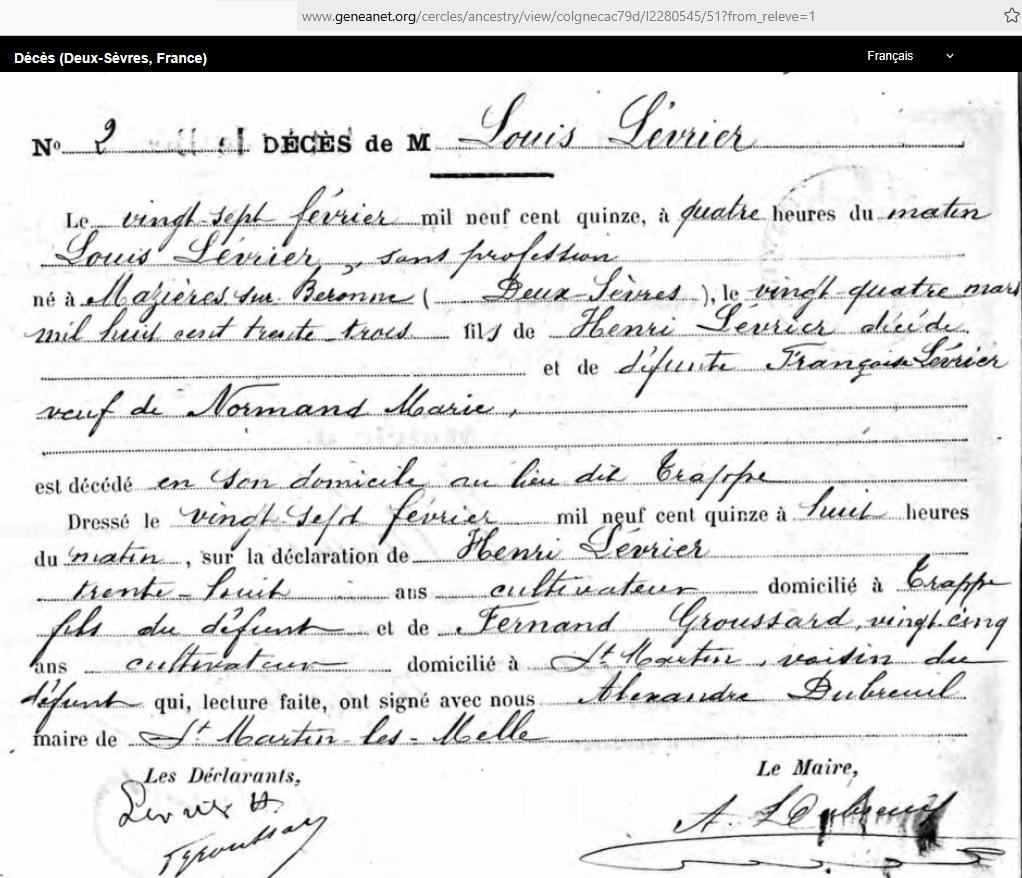 www.geneanet.org/cercles/ancestry/view/colgnecac79d/I2280545/51?from_releve=1
Décès (Deux-Sèvres, France) Français
No 2 DÉCÈS de M Louis Lévrier
Le vingt-sept février mil neuf cent quinze, à quatre heures du matin
Louis Lévrier, sans profession
né à Mazières sur Beronne (Deux-Sèvres), le vingt quatre mars
mil huit cent trente trois fils de Henri Lévrier décédé
et de défunte Françoise Lévrier
veuf de Normand Marie,
est décédé en son domicile au lieu dit Trappe
Dressé le vingt-sept février mil neuf cent quinze à huit heures
du matin, sur la déclaration de Henri Lévrier
trente-huit ans cultivateur domicilié à Trappe
fils du défunt et de Fernand Groussard, vingt-cinq
ans cultivateur domicilié à St Martin, voisin du
défunt qui, lecture faite, ont signé avec nous Alexandre Dubreuil
maire de St Martin-les-Melle
Les Déclarants, Le Maire,
Levrier H A. Dubreuil
F groussard